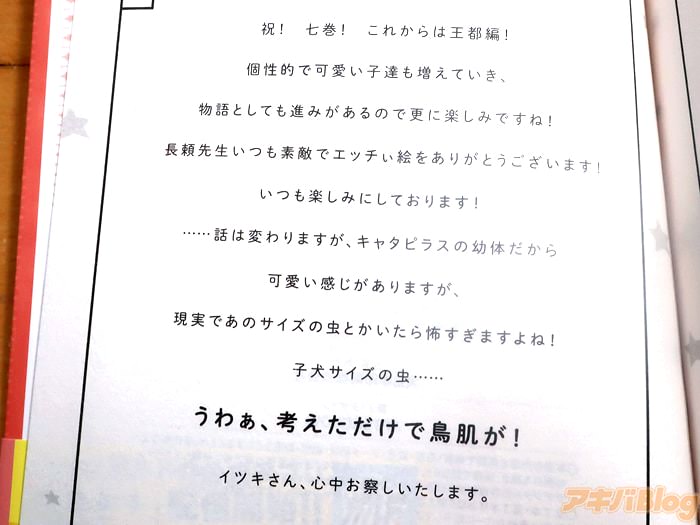 祝！　七巻！　これからは王都編！
個性的で可愛い子達も増えていき、
物語としても進みがあるので更に楽しみですね！
長頼先生いつも素敵でエッチぃ絵をありがとうございます！
いつも楽しみにしております！
……話は変わりますが、キャタピラスの幼体だから
可愛い感じがありますが、
現実であのサイズの虫とかいたら怖すぎますよね！
子犬サイズの虫……
うわぁ、考えただけで鳥肌が！
イツキさん、心中お察しいたします。
アキバBlog